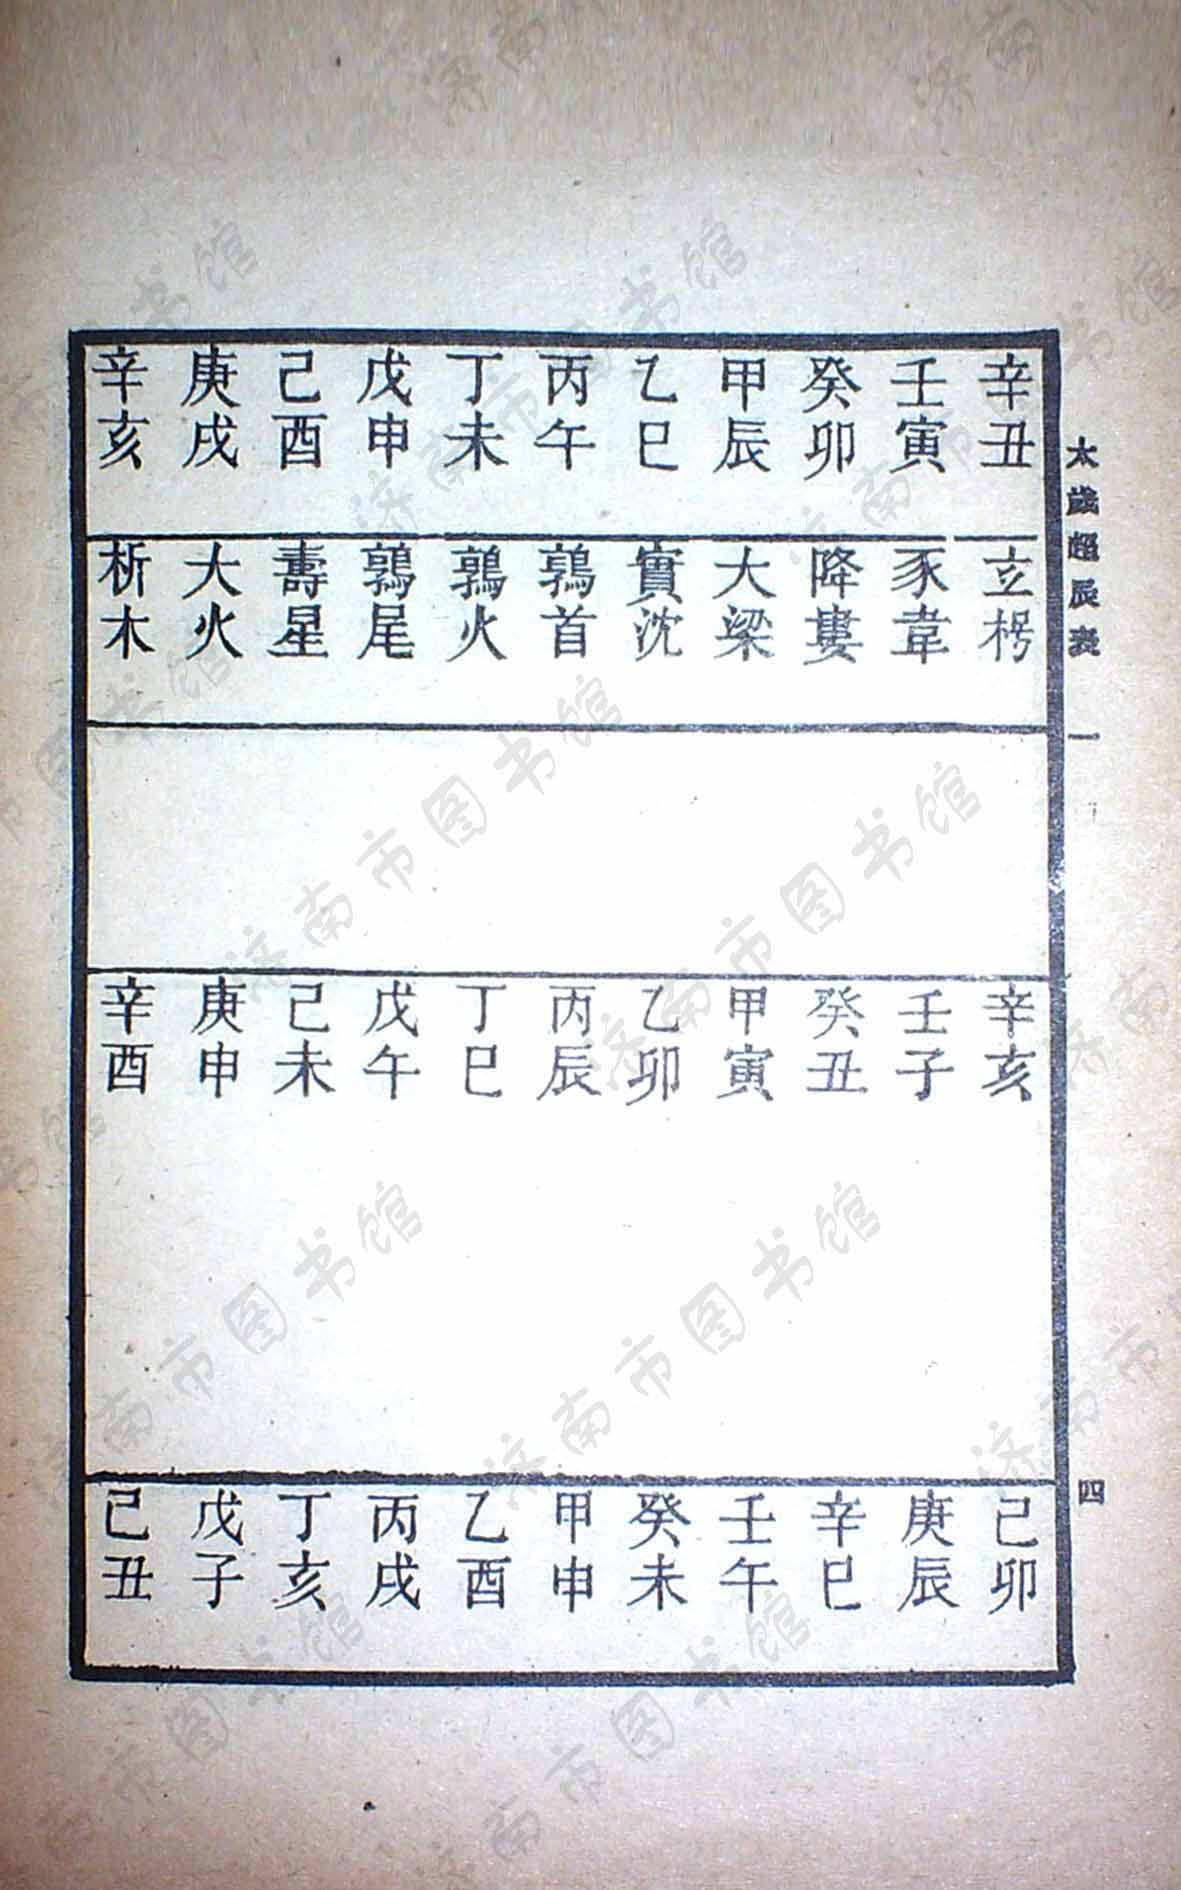 太歲超辰表 一 四
辛丑 玄枵 辛亥 己卯
壬寅 豕韋 壬子 庚辰
癸卯 降婁 癸丑 辛巳
甲辰 大梁 甲寅 壬午
乙巳 實沈 乙卯 癸未
丙午 鶉首 丙辰 甲申
丁未 鶉火 丁巳 乙酉
戊申 鶉尾 戊午 丙戌
己酉 壽星 己未 丁亥
庚戌 大火 庚申 戊子
辛亥 析木 辛酉 己丑
济南市图书馆